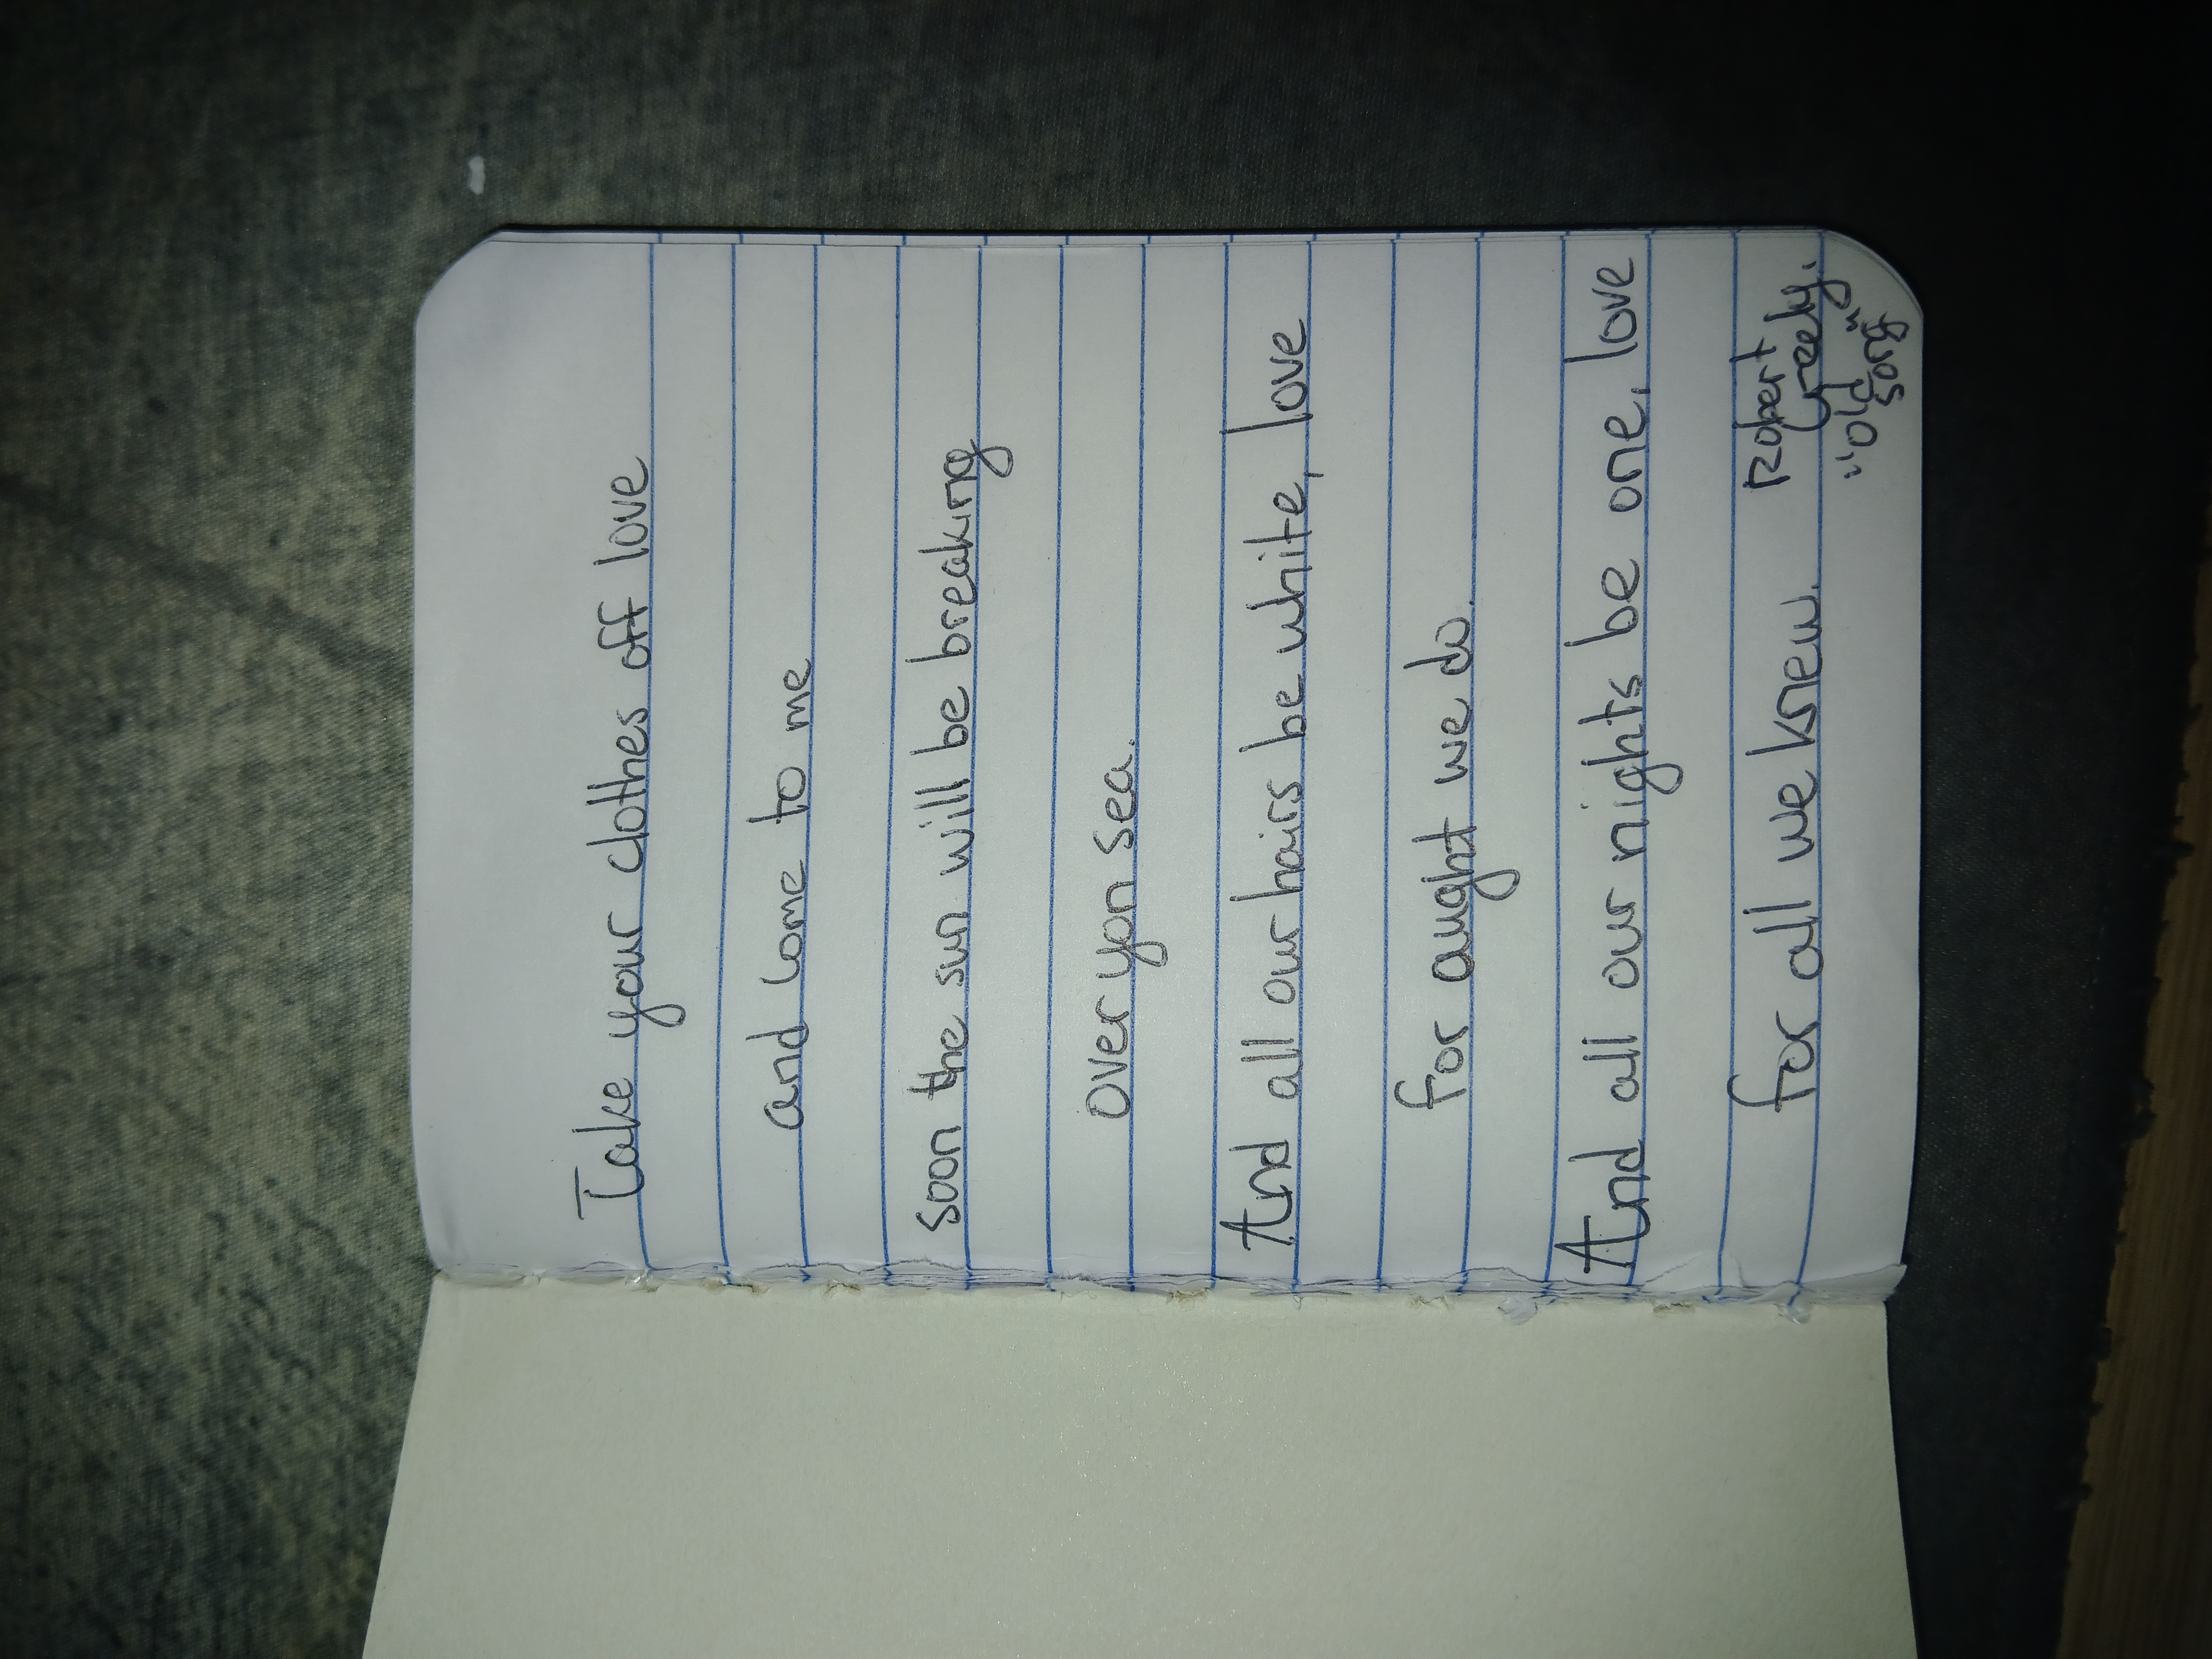 Take your clothes off love
and come to me
Soon the sun will be breaking
over yon sea.
And all our hairs be white, love
for aught we do.
And all our nights be one, love
for all we knew.
Robert
Creely.
"Old"
song